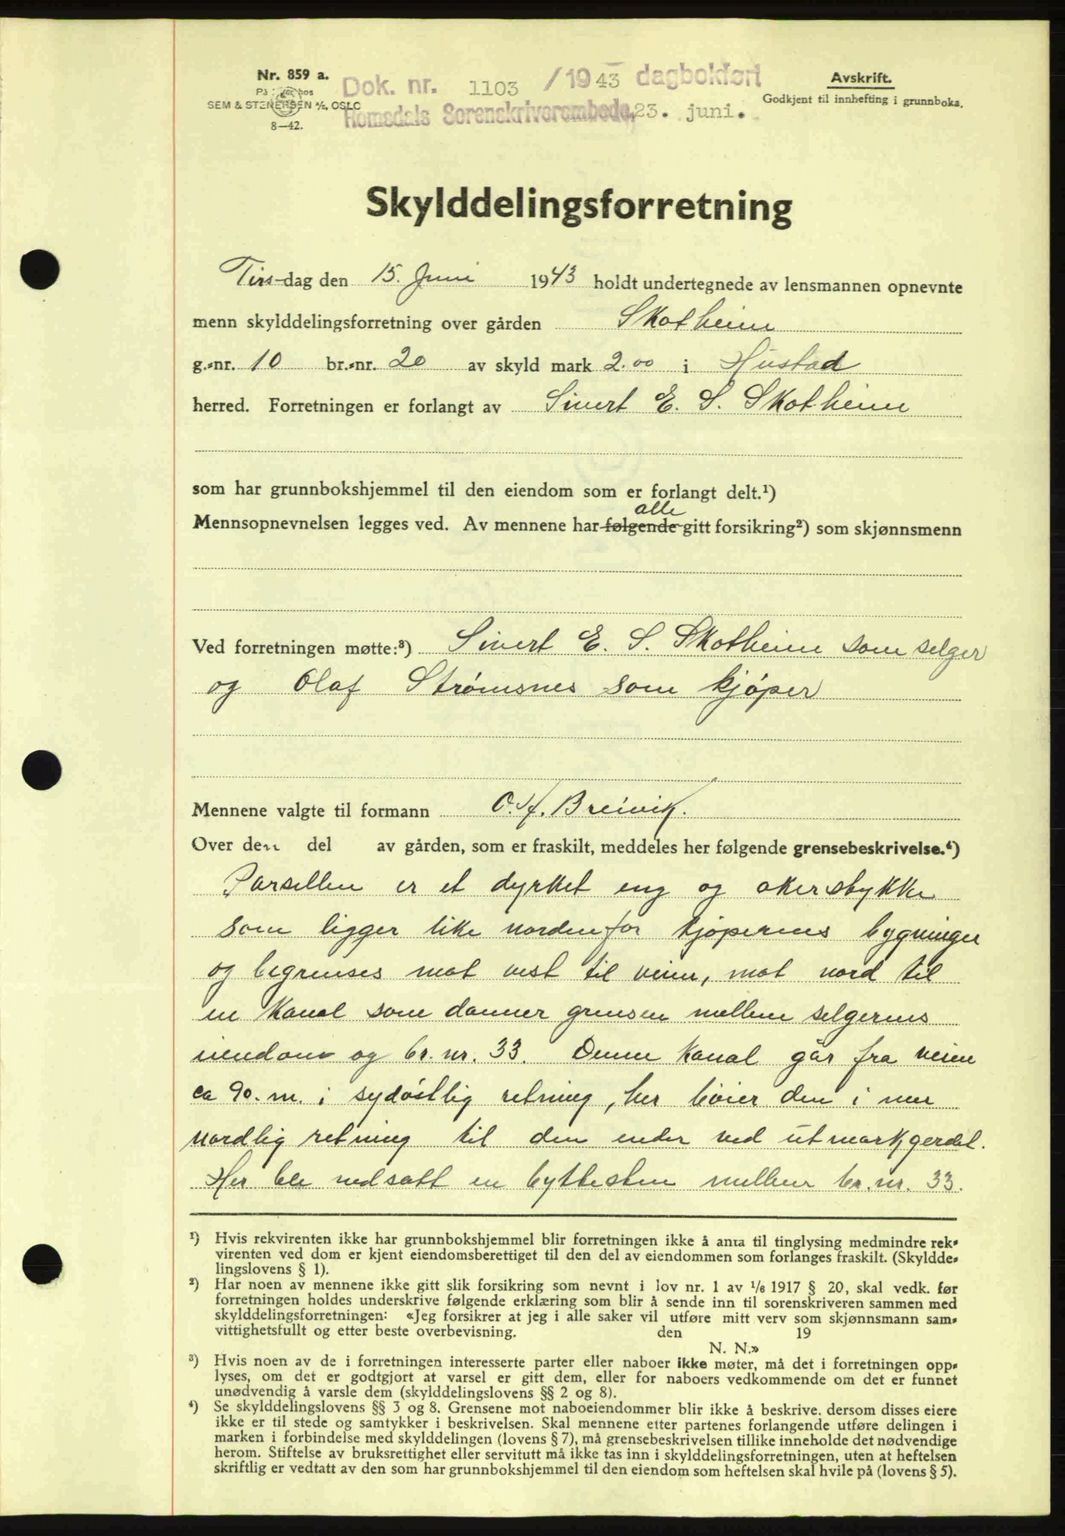 Nr. 859 a.
SEM & STENERSEN A/S, OSLO
8—42.
Dok. nr. 1103 /1943 dagbokført
Romsdals Sorenskriverembede, 23. juni.
Avskrift.
Godkjent til innhefting i grunnboka.
Skylddelingsforretning
Tirs-dag den 15. Juni 1943 holdt undertegnede av lensmannen opnevnte
menn skylddelingsforretning over gården Skotheim
g.-nr. 10 br.-nr. 20 av skyld mark 2.00 i Hustad
herred. Forretningen er forlangt av Sivert E. S. Skotheim
som har grunnbokshjemmel til den eiendom som er forlangt delt.¹)
alle
Mennsopnevnelsen legges ved. Av mennene har følgende gitt forsikring²) som skjønnsmenn
Ved forretningen møtte:³) Sivert E. S. Skotheim som selger
og Olaf Strømsnes som kjøper
Mennene valgte til formann O. H. Breivik.
Over den del av gården, som er fraskilt, meddeles her følgende grensebeskrivelse.⁴)
Parsellen er et dyrket eng og akerstykke
som ligger like nordenfor kjøperens bygninger
og begrenses mot vest til veien, mot nord til
en kanal som danner grensen mellem selgerens
eiendom og br. nr. 33. Denne kanal går fra veien
ca 90. m. i sydøstlig retning, her bøier den i mer
nordlig retning til den ender ved utmarkgerdet.
Her ble nedsatt en byttesten mellem br. nr. 33.
¹) Hvis rekvirenten ikke har grunnbokshjemmel blir forretningen ikke å anta til tinglysing medmindre rek-
virenten ved dom er kjent eiendomsberettiget til den del av eiendommen som forlanges fraskilt. (Skyldde-
lingslovens § 1).
²) Har noen av mennene ikke gitt slik forsikring som nevnt i lov nr. 1 av 1/6 1917 § 20, skal vedk. før
forretningen holdes underskrive følgende erklæring som blir å sende inn til sorenskriveren sammen med
skylddelingsforretningen: «Jeg forsikrer at jeg i alle saker vil utføre mitt verv som skjønnsmann sam-
vittighetsfullt og etter beste overbevisning. den 19
N. N.»
³) Hvis noen av de i forretningen interesserte parter eller naboer ikke møter, må det i forretningen opp-
lyses, om det er godtgjort at varsel er gitt dem, eller for naboers vedkommende om det er funnet
unødvendig å varsle dem (skylddelingslovens §§ 2 og 8).
⁴) Se skylddelingslovens §§ 3 og 8. Grensene mot naboeiendommer blir ikke å beskrive, dersom disses eiere
ikke er til stede og samtykker i beskrivelsen. Skal mennene etter partenes forlangende utføre delingen i
marken i forbindelse med skylddelingen (lovens § 7), må grensebeskrivelsen tillike inneholde det nødvendige
herom. Stiftelse av bruksrettighet eller servitutt må ikke tas inn i skylddelingsforretningen, uten at heftelsen
skriftlig er vedtatt av den som har grunnbokshjemmel til den eiendom som heftelsen skal hvile på (lovens § 5).